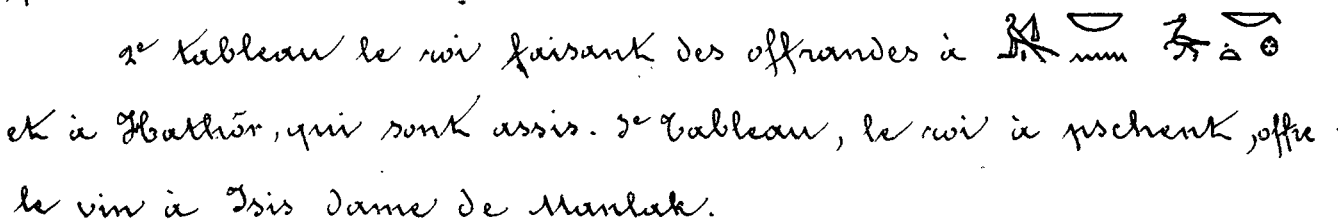 2e tableau le roi faisant des offrandes à
et à Hathôr, qui sont assis. 3e tableau, le roi à pschent, offre
le vin à Isis dame de Manlak.